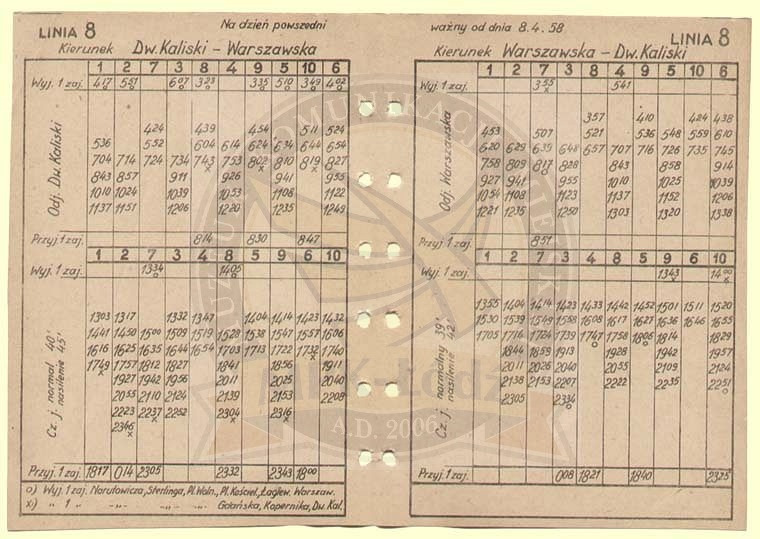 LINIA 8
Na dzień powszedni
Kierunek Dw. Kaliski – Warszawska
1 2 7 3 8 4 9 5 10 6
Wyj. 1 zaj. 417 551 607 323 335 510 349 402
Odj. Dw. Kaliski
424 439 454 511 524
536 552 604 614 624 634 644 654
704 714 724 734 743 753 802 810 819 827
843 857 911 926 941 955
1010 1024 1039 1053 1108 1122
1137 1151 1206 1220 1235 1249
Przyj. 1 zaj. 814 830 847
1 2 7 3 8 4 9 5 10 6
Wyj. 1 zaj. 1334 1405
Cz. j. normal. 40'
nasilenie 45'
1303 1317 1332 1347 1404 1414 1423 1432
1441 1450 1500 1509 1519 1528 1538 1547 1557 1606
1616 1625 1635 1644 1654 1703 1713 1722 1732 1740
1749 1757 1812 1827 1841 1856 1911
1927 1942 1956 2011 2025 2040
2055 2110 2124 2139 2153 2208
2223 2237 2252 2304 2316
2346
Przyj. 1 zaj. 1817 014 2305 2332 2343 1800
o) Wyj. 1 zaj. Narutowicza, Sterlinga, Pl. Woln., Pl. Kościel., Łagiew. Warszaw.
x) " " 1 " " Gdańska, Kopernika, Dw. Kal.
ważny od dnia 8.4.58
LINIA 8
Kierunek Warszawska – Dw. Kaliski
1 2 7 3 8 4 9 5 10 6
Wyj. 1 zaj. 355 541
Odj. Warszawska
357 410 424 438
453 507 521 536 548 559 610
620 629 639 648 657 707 716 726 735 745
758 809 817 828 843 858 914
927 941 955 1010 1025 1039
1054 1108 1123 1137 1152 1206
1221 1235 1250 1303 1320 1338
Przyj. 1 zaj. 851
1 2 7 3 8 4 9 5 11 10
Wyj. 1 zaj. 1343 1400
Cz. j. normalny 39'
nasilenie 42'
1355 1404 1414 1423 1433 1442 1452 1501 1511 1520
1530 1539 1549 1558 1608 1617 1627 1636 1646 1655
1705 1714 1724 1739 1747 1758 1806 1814 1829
1844 1859 1913 1928 1942 1957
2011 2026 2040 2055 2109 2124
2138 2153 2207 2222 2235 2251
2305 2334
Przyj. 1 zaj. 008 1821 1840 2325
A.D. 2006